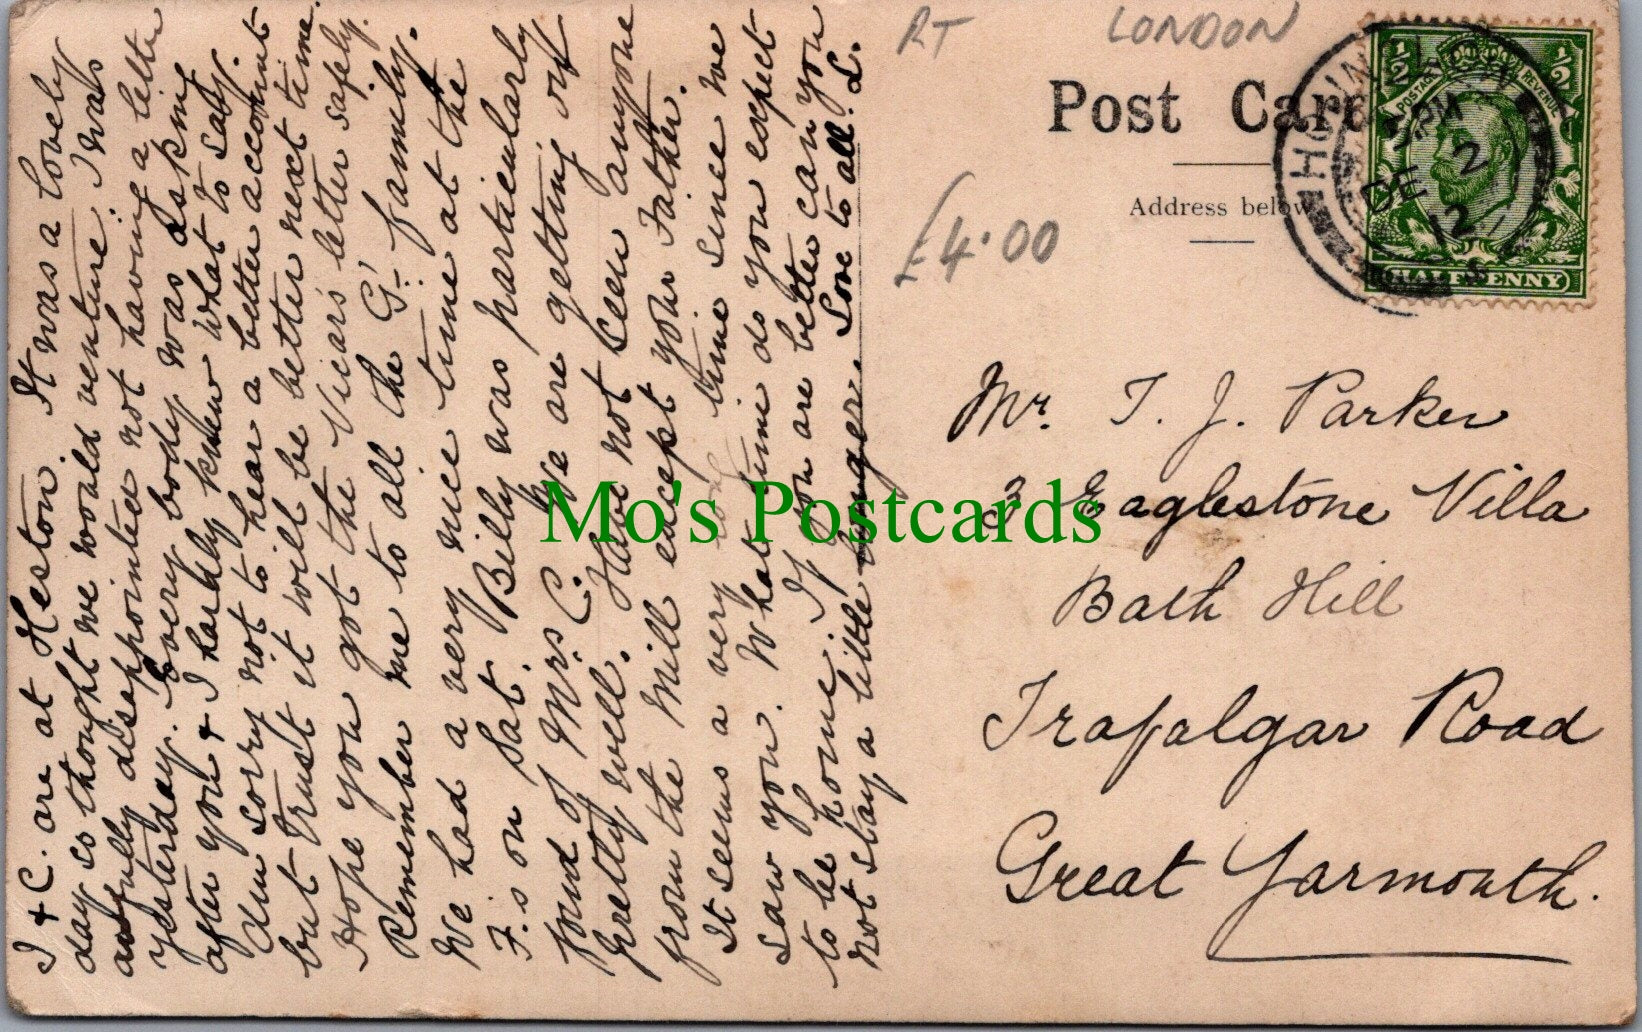 I & C. are at Heston. It was a lovely
day so thought we would venture. I was
awfully disappointed not having a letter
yesterday. Every body was asking
after you & I hardly knew what to say.
Am sorry not to hear a better account
but trust it will be better next time.
Hope you got the Vicars letter safely.
Remember me to all the G. family.
We had a very nice time at the
F.s on Sat. Billy was particularly
fond of Mrs. C. We are getting on
pretty well. Have not seen anyone
from the Mill except your Father.
It seems a very time since we
saw you. What time do you expect
to be home. If you are better can you
not stay a little longer. Love to all. L.
RT
LONDON
£4.00
Post Card
Address below
Mr. T. J. Parker
3 Eaglestone Villa
Bath Hill
Trafalgar Road
Great Yarmouth.
HOUNSLOW
PM
DE 2
12
1/2 1/2
POSTAGE REVENUE
HALFPENNY
Mo's Postcards